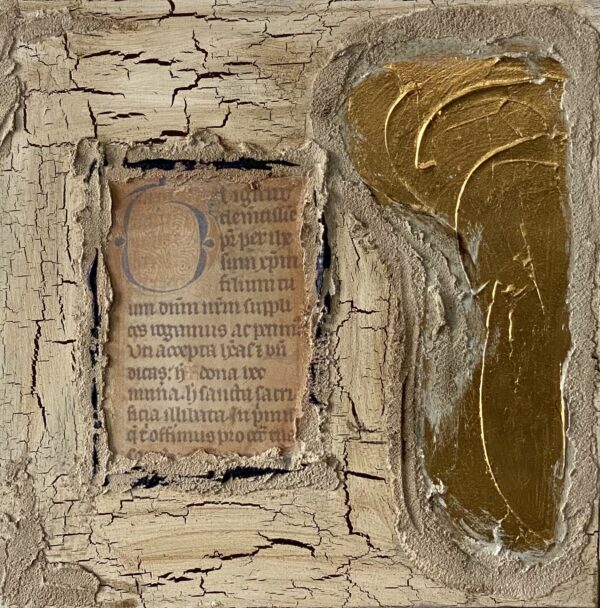 igitur
clemetissie
pr per ihe
sum xpm
filium tu
um dnm nrm suppli
ces rogamus ac petim
Uti accepta heas t bn
dicas. h dona hec
muna. h sancta sacri
ficia illibata. In primis
q t offimus pro ecc tua